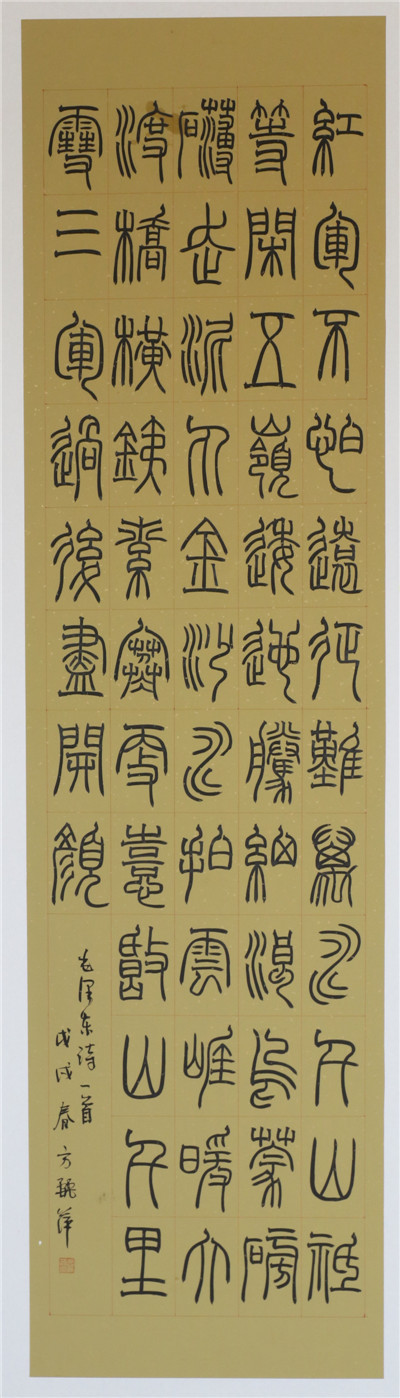 紅軍不怕遠征難萬水千山祇
等閑五嶺逶迤騰細浪烏蒙磅
礴走泥丸金沙水拍雲崖暖大
渡橋橫銕索寒更喜岷山千里
雪三軍過後盡開顏
毛泽东诗一首
戊戌春方萍